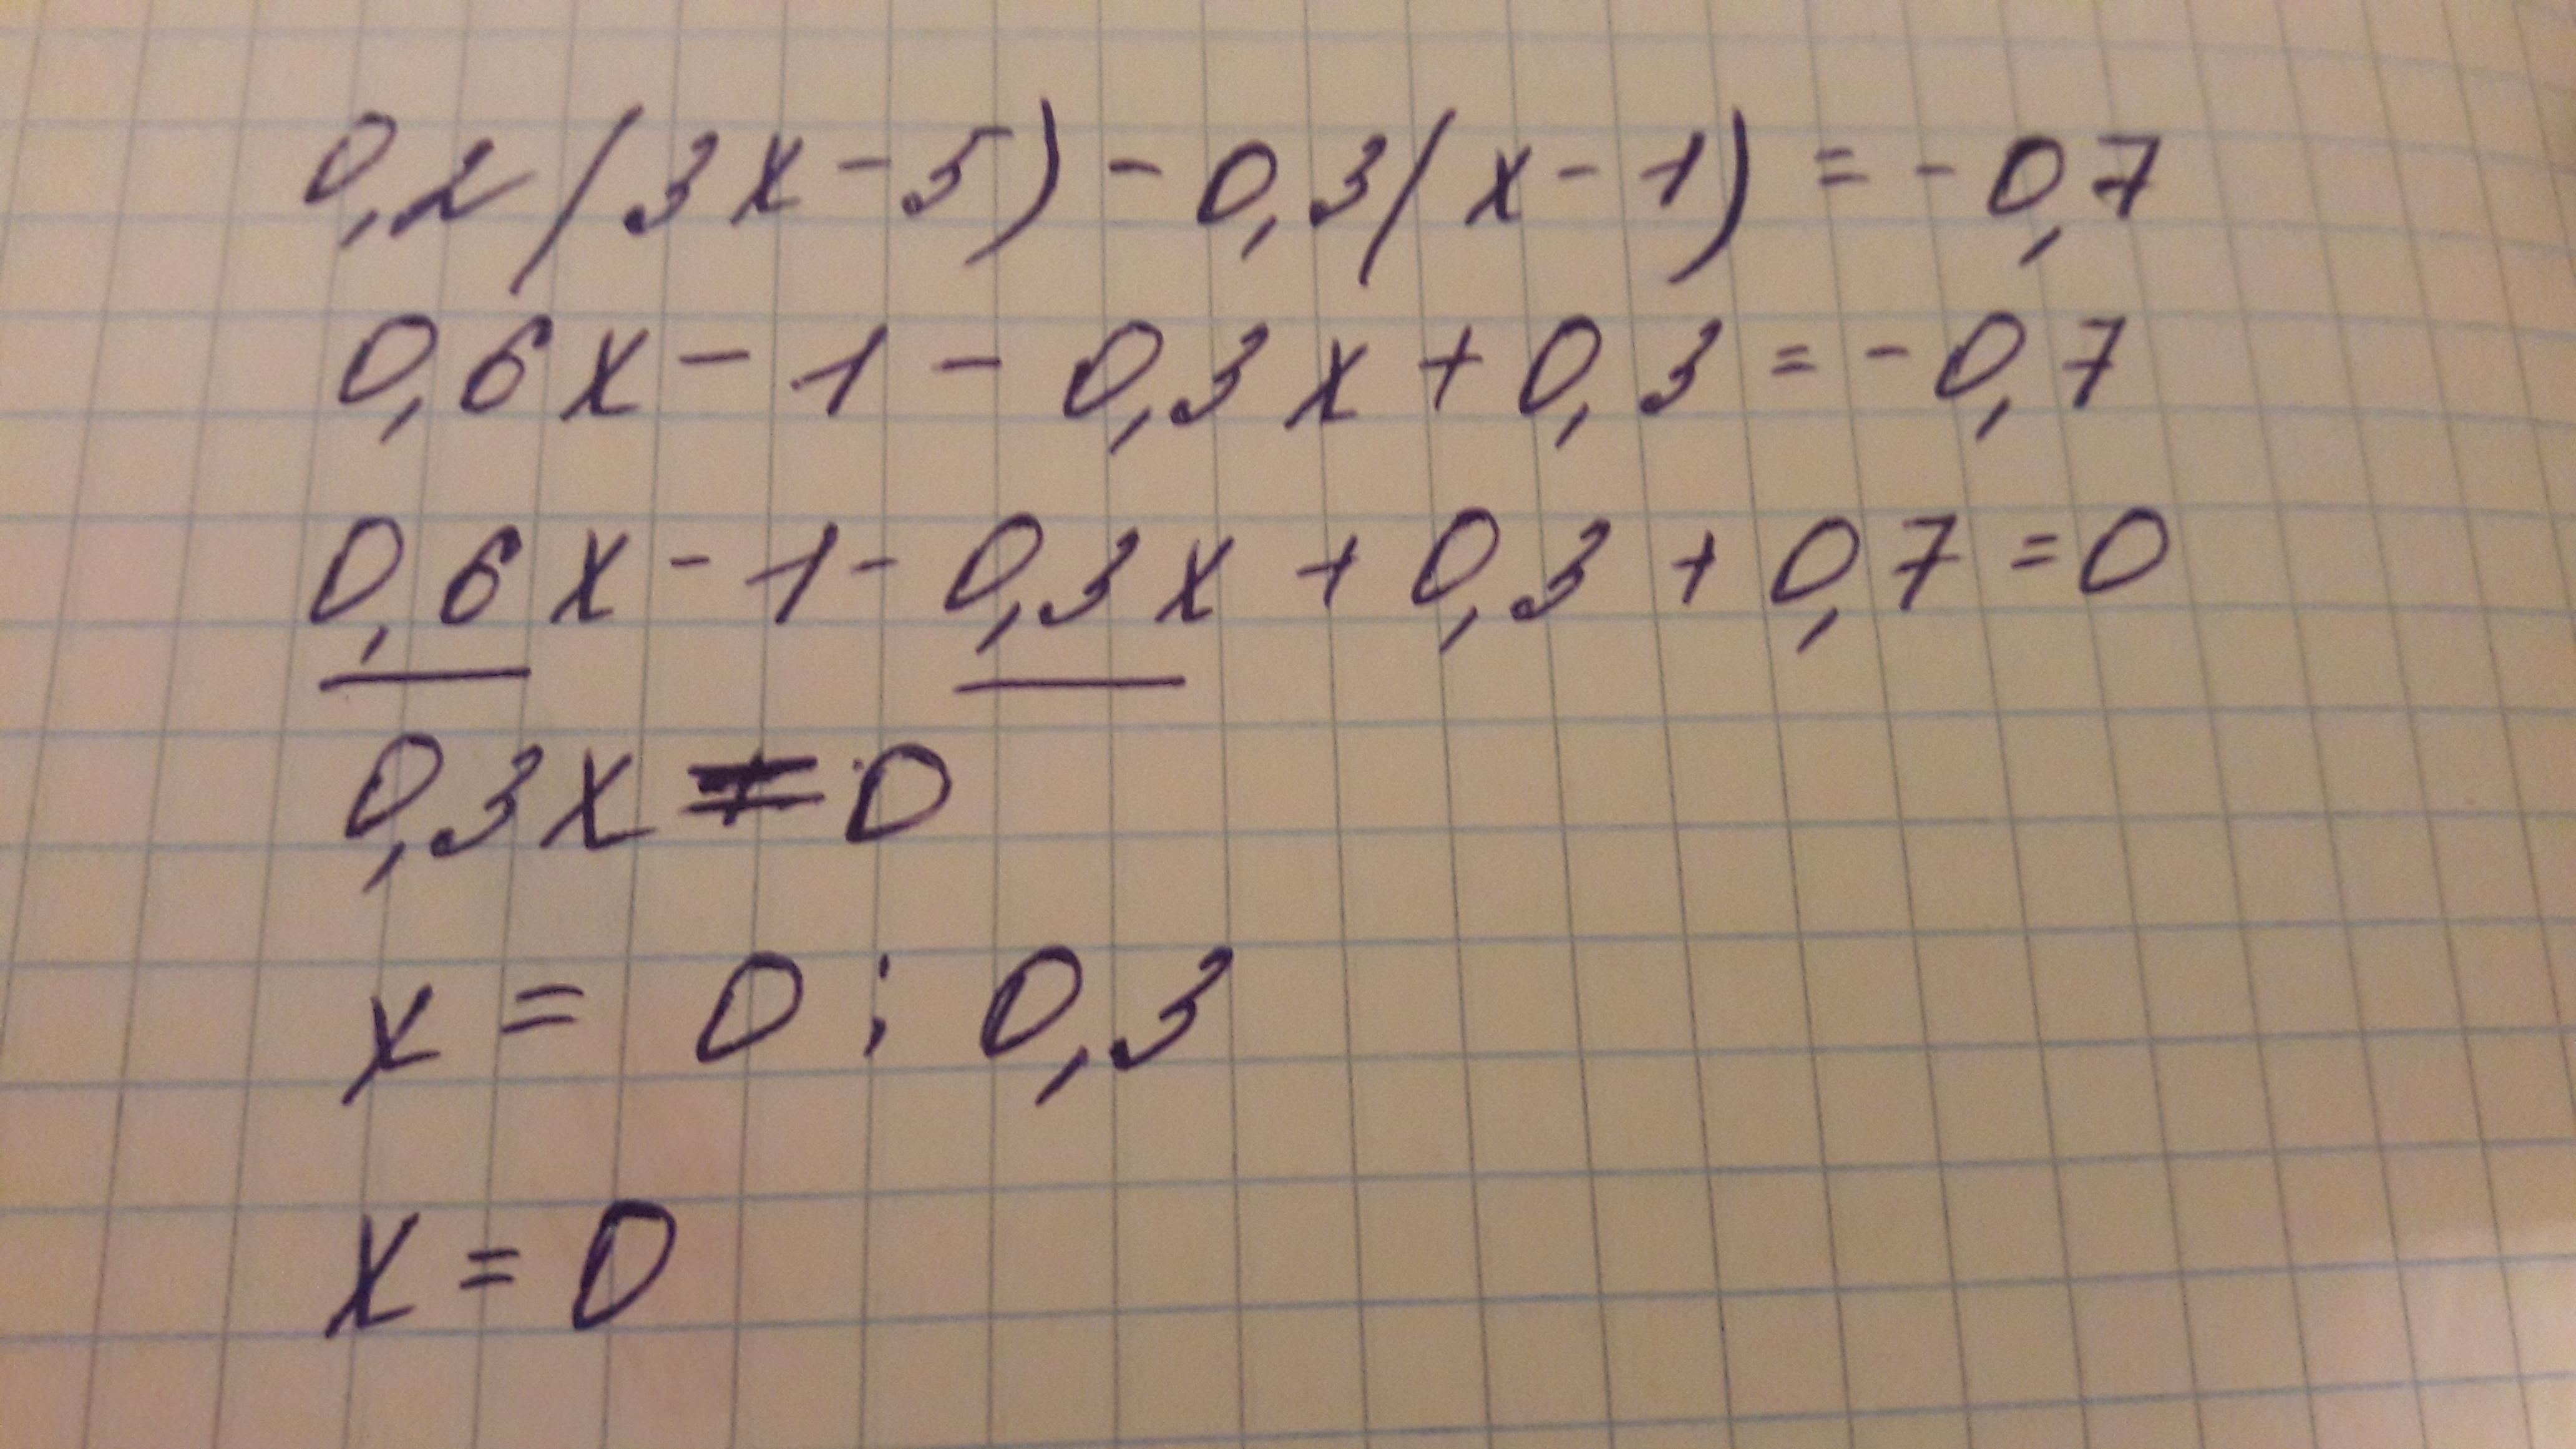 0,2(3x-5)-0,3(x-1)=-0,7
0,6x-1-0,3x+0,3=-0,7
0,6x-1-0,3x+0,3+0,7=0
0,3x=0
x=0:0,3
x=0